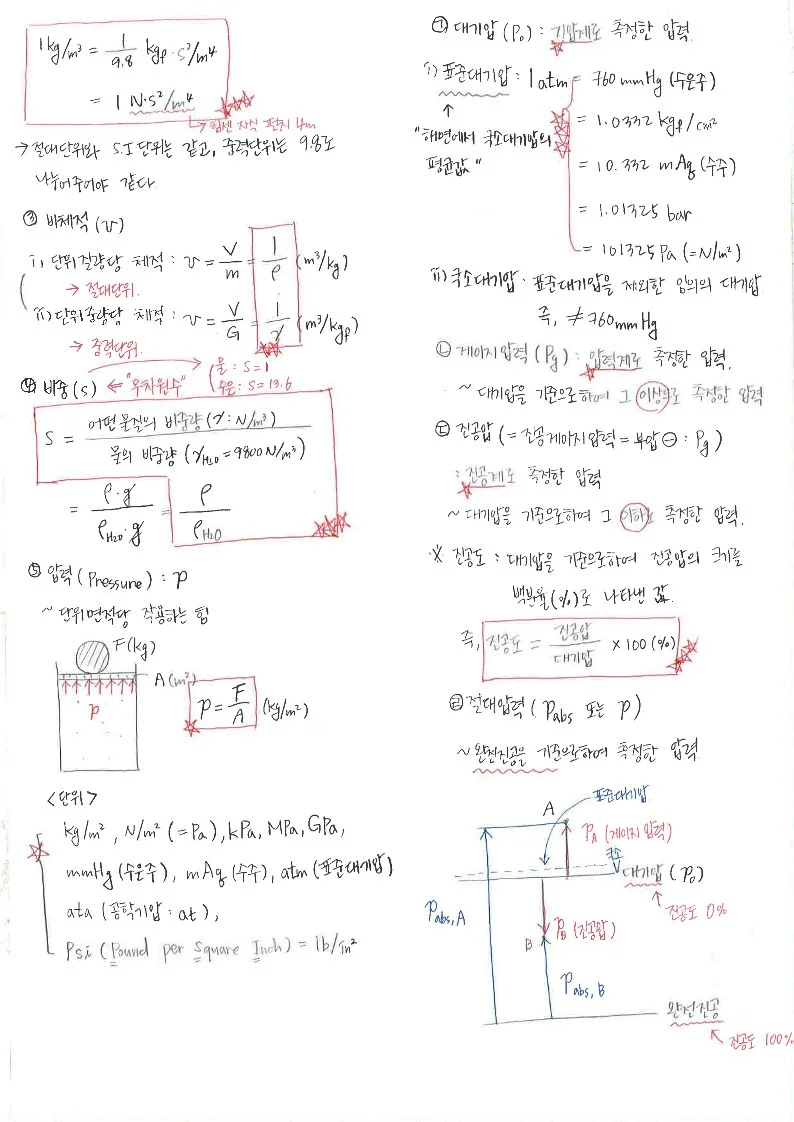 1 kg/m³ = 1/9.8 kgf·s²/m⁴
= 1 N·s²/m⁴
→ 힘센 자식 펀치 4m
→ 절대단위와 S.I 단위는 같고, 중력단위는 9.8로
나누어주어야 같다.
③ 비체적 (v)
i) 단위질량당 체적 : v = V/m = 1/ρ (m³/kg)
→ 절대단위.
ii) 단위중량당 체적 : v = V/G = 1/γ (m³/kgf)
→ 중력단위.
물 : S=1
수은 : S=13.6
④ 비중(s) ← "무차원수"
S = 어떤 물질의 비중량 (γ : N/m³) / 물의 비중량 (γH₂O = 9800 N/m³)
= ρ·g / ρH₂O·g = ρ / ρH₂O
⑤ 압력 (Pressure) : P
~ 단위면적당 작용하는 힘
F(kg)
A (m²)
P
P = F/A (kg/m²)
<단위>
kg/m², N/m² (=Pa), kPa, MPa, GPa,
mmHg (수은주), mAq (수주), atm (표준대기압)
ata (공학기압 : at),
Psi (Pound per Square Inch) = lb/in²
㉠ 대기압 (P₀) : 기압계로 측정한 압력.
i) 표준대기압 : 1 atm = 760 mmHg (수은주)
= 1.0332 kgf/cm²
"해면에서 국소대기압의
평균값"
= 10.332 mAq (수주)
= 1.01325 bar
= 101325 Pa (=N/m²)
ii) 국소대기압 : 표준대기압을 제외한 임의의 대기압
즉, ≠760mmHg
㉡ 게이지압력 (Pg) : 압력계로 측정한 압력.
~ 대기압을 기준으로하여 그 이상으로 측정한 압력
㉢ 진공압 (= 진공게이지압력 = 부압 ⊖ : Pg)
: 진공계로 측정한 압력
~ 대기압을 기준으로하여 그 이하로 측정한 압력.
※ 진공도 : 대기압을 기준으로하여 진공압의 크기를
백분율(%)로 나타낸 값.
즉, 진공도 = 진공압/대기압 × 100 (%)
㉣ 절대압력 (Pabs 또는 P)
~ 완전진공을 기준으로하여 측정한 압력.
표준대기압
A
PA (게이지 압력)
국소
대기압 (P₀)
진공도 0%
Pabs, A
PB (진공압)
B
Pabs, B
완전진공
진공도 100%